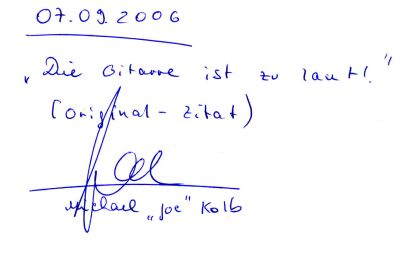 07.09.2006
„Die Gitarre ist zu laut!"
(Original-Zitat)
Michael „Joe" Kolb